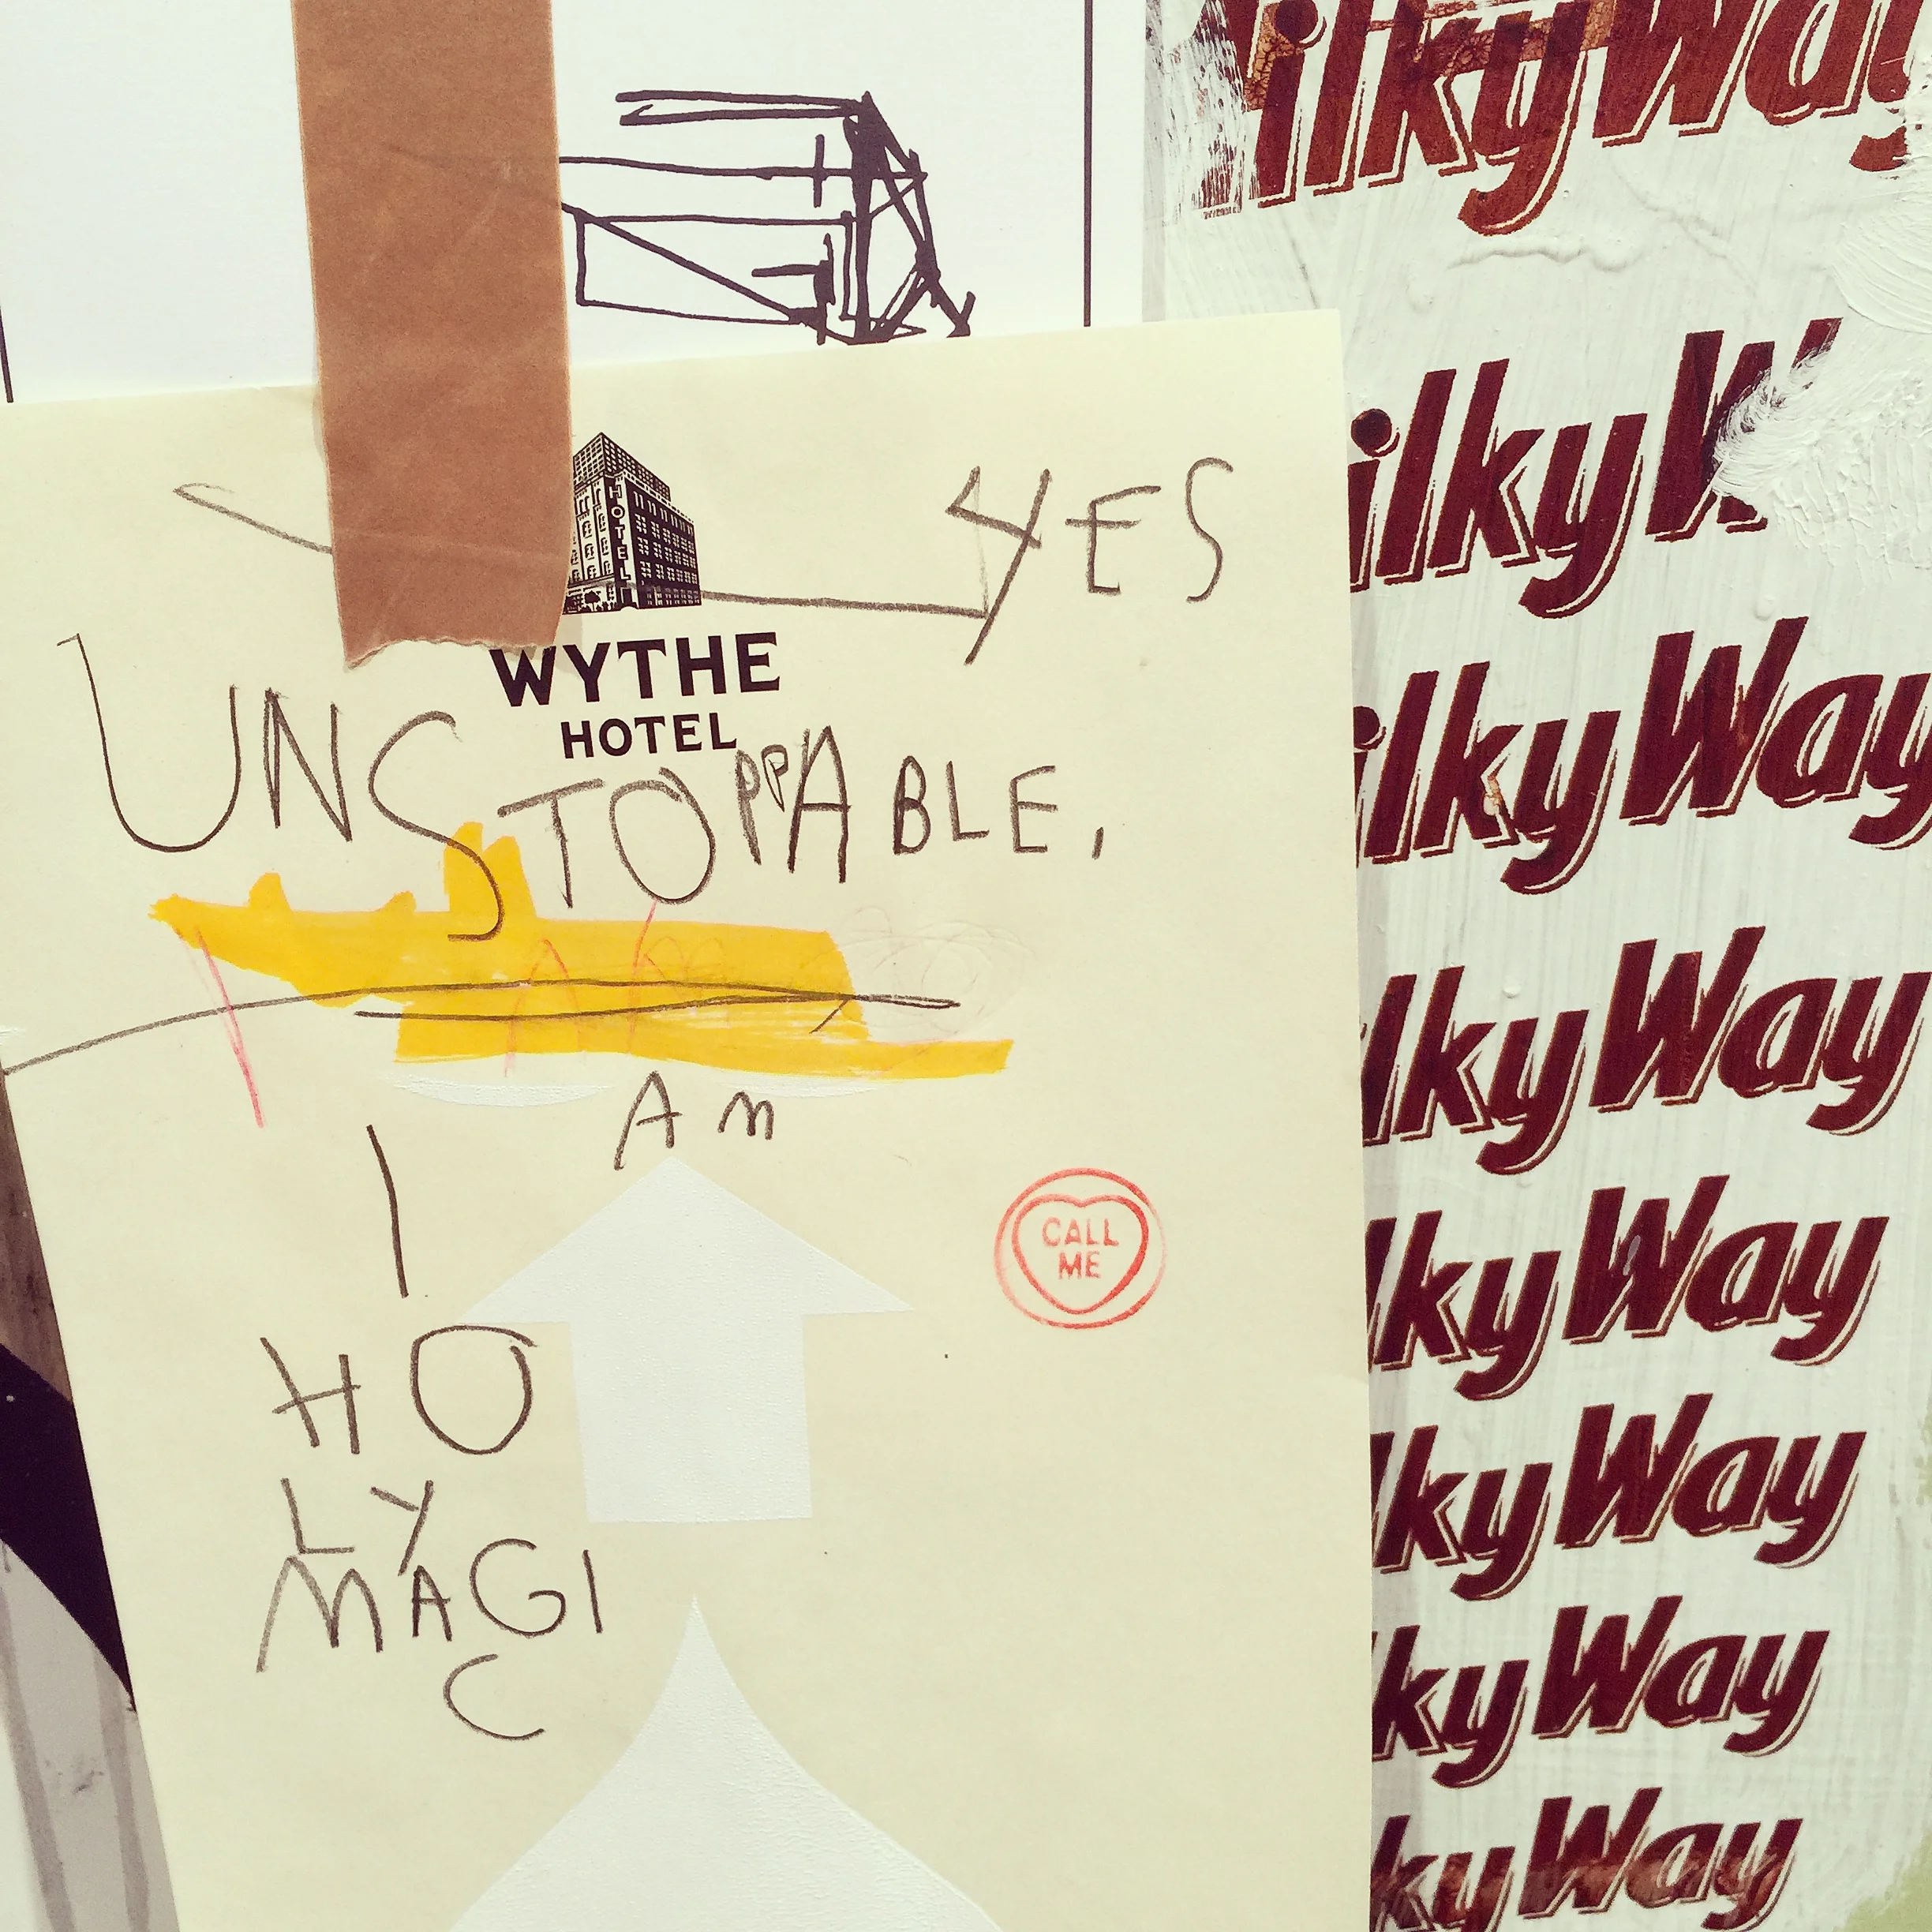 HOTEL
YES
WYTHE
HOTEL
UNSTOPPABLE,
I Am
HO
LY
MAGI
C
CALL
ME
ilkyWay
ilkyW
ilkyWay
lkyWay
lkyWay
lkyWay
kyWay
kyWay